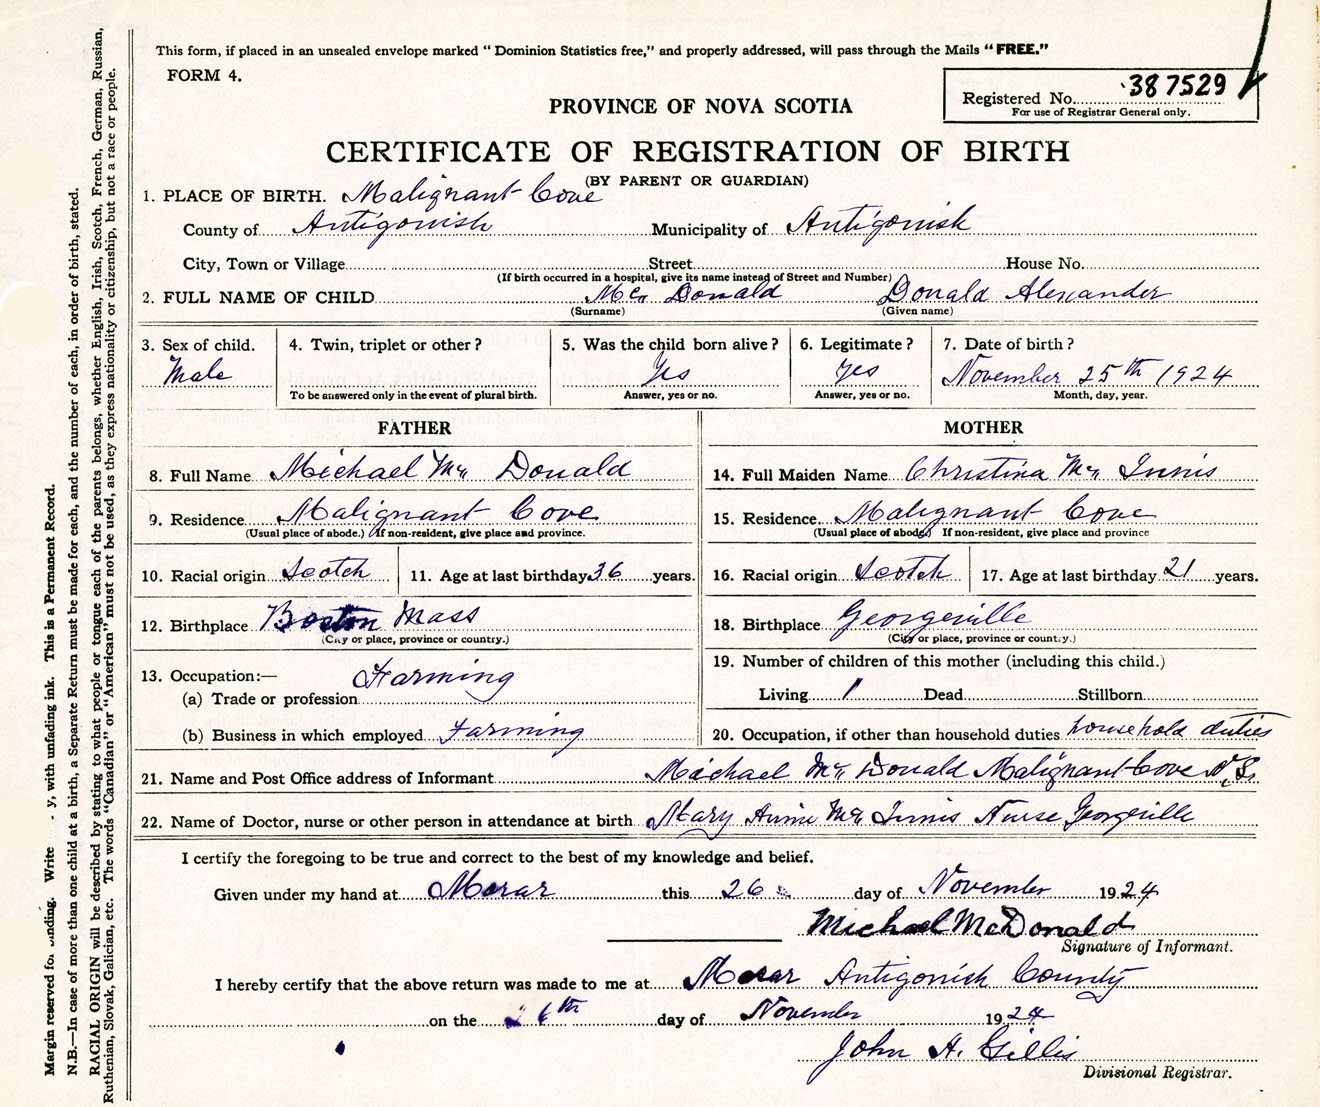 This form, if placed in an unsealed envelope marked "Dominion Statistics free," and properly addressed, will pass through the Mails "FREE."
FORM 4.
Registered No. 387529
For use of Registrar General only.
PROVINCE OF NOVA SCOTIA
CERTIFICATE OF REGISTRATION OF BIRTH
(BY PARENT OR GUARDIAN)
1. PLACE OF BIRTH. Malignant Cove
County of Antigonish Municipality of Antigonish
City, Town or Village Street House No.
(If birth occurred in a hospital, give its name instead of Street and Number)
2. FULL NAME OF CHILD Mc Donald Donald Alexander
(Surname) (Given name)
3. Sex of child. 4. Twin, triplet or other? 5. Was the child born alive? 6. Legitimate? 7. Date of birth?
Male Yes Yes November 25th 1924
To be answered only in the event of plural birth. Answer, yes or no. Answer, yes or no. Month, day, year.
FATHER MOTHER
8. Full Name Michael Mc Donald 14. Full Maiden Name Christina Mc Innis
9. Residence Malignant Cove 15. Residence Malignant Cove
(Usual place of abode.) If non-resident, give place and province. (Usual place of abode.) If non-resident, give place and province
10. Racial origin Scotch 11. Age at last birthday 36 years. 16. Racial origin Scotch 17. Age at last birthday 21 years.
12. Birthplace Boston Mass 18. Birthplace Georgeville
(City or place, province or country.) (City or place, province or country.)
13. Occupation:— Farming 19. Number of children of this mother (including this child.)
(a) Trade or profession Living 1 Dead Stillborn
(b) Business in which employed Farming 20. Occupation, if other than household duties household duties
21. Name and Post Office address of Informant Michael Mc Donald Malignant Cove N.S.
22. Name of Doctor, nurse or other person in attendance at birth Mary Annie Mc Innis Nurse Georgeville
I certify the foregoing to be true and correct to the best of my knowledge and belief.
Given under my hand at Morar this 26 day of November 1924
Michael McDonald
Signature of Informant.
I hereby certify that the above return was made to me at Morar Antigonish County
on the 26th day of November 1924
John A. Gillis
Divisional Registrar.
Margin reserved for binding. Write y, with unfading ink. This is a Permanent Record.
N.B.—In case of more than one child at a birth, a Separate Return must be made for each, and the number of each, in order of birth, stated.
RACIAL ORIGIN will be described by stating to what people or tongue each of the parents belongs, whether English, Irish, Scotch, French, German, Russian,
Ruthenian, Slovak, Galician, etc. The words "Canadian" or "American" must not be used, as they express nationality or citizenship, but not a race or people.